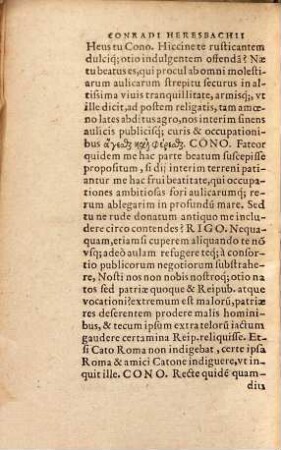 CONRADI HERESBACHII
Heus tu Cono. Hiccine te rusticantem
dulciq́; otio indulgentem offendã? Næ
tu beatus es, qui procul ab omni molesti-
arum aulicarum strepitu securus in al-
tissima viuis tranquillitate, armisq́;, vt
ille dicit, ad postem religatis, tam amœ-
no lates abditus agro, nos interim sinens
aulicis publicisq́; curis & occupationi-
bus ἄγεσθαι καὶ φέρεσθαι. CONO. Fateor
quidem me hac parte beatum suscepisse
propositum, si dij interim terreni patian-
tur me hac frui beatitate, qui occupa-
tiones ambitiosas fori aulicarumq́; re-
rum ablegarim in profundũ mare. Sed
tu ne rude donatum antiquo me inclu-
dere circo contendes? RIGO. Nequa-
quam, etiamsi cuperem aliquando te nõ
vsq́; adeò aulam refugere teq́; à consor-
tio publicorum negotiorum substrahe-
re, Nosti nos non nobis nostroq́; otio na-
tos sed patriæ quoque & Reipub. atque
vocationi? extremum est malorũ, patriæ
res deserentem prodere malis homini-
bus, & tecum ipsum extra telorũ iactum
gaudere certamina Reip. reliquisse. Et-
si Cato Roma non indigebat, certe ipsa
Roma & amici Catone indiguere, vt in-
quit ille. CONO. Recte quidẽ quam-
diu